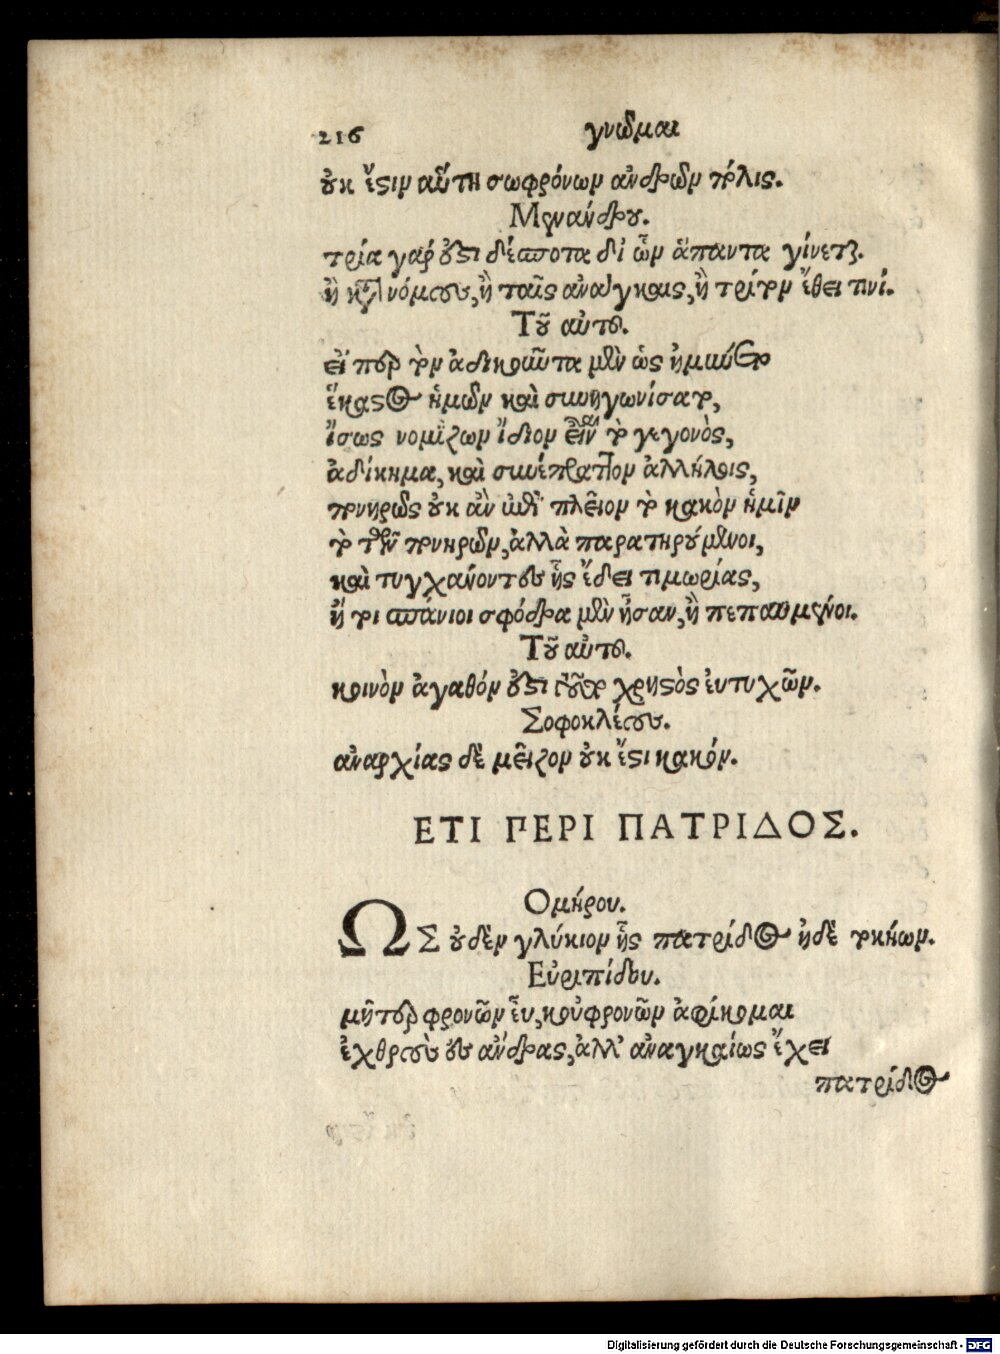 216 γνῶμαι
οὐκ ἔστιν αὕτη σωφρόνων ἀνδρῶν πόλις.
Μενάνδρου.
τρία γάρ ἐστι δέσποτα δι' ὧν ἅπαντα γίνεται.
ἢ κατὰ νόμους, ἢ ταῖς ἀνάγκαις, ἢ τρίτον ἔθει τινί.
Τοῦ αὐτοῦ.
εἴ περ τὸν ἀδικοῦντα μὲν ὡς ἠμύνετο
ἕκαστος ἡμῶν καὶ συνηγωνίσατο,
ἴσως νομίζων ἴδιον εἶναι τὸ γεγονὸς,
ἀδίκημα, καὶ συνέπραττον ἀλλήλοις,
πονηρῶς οὐκ ἂν ἐπὶ πλεῖον τὸ κακὸν ἡμῖν
τὸ τῶν πονηρῶν, ἀλλὰ παρατηρούμενοι,
καὶ τυγχάνοντες ἧς ἔδει τιμωρίας,
ἤτοι σπάνιοι σφόδρα μὲν ἦσαν, ἢ πεπαυμένοι.
Τοῦ αὐτοῦ.
κοινὸν ἀγαθόν ἐστι τοῦτο χρηστὸς εὐτυχῶν.
Σοφοκλέους.
ἀναρχίας δὲ μεῖζον οὐκ ἔστι κακόν.
ΕΤΙ ΠΕΡΙ ΠΑΤΡΙΔΟΣ.
Ομήρου.
ΩΣ οὐδὲν γλύκιον ἧς πατρίδος ἠδὲ τοκήων.
Εὐριπίδου.
μῆτερ φρονῶν εὖ, κοὐ φρονῶν ἀφίκομαι
ἐχθροὺς ἐς ἄνδρας, ἀλλ' ἀναγκαίως ἔχει
πατρίδος
Digitalisierung gefördert durch die Deutsche Forschungsgemeinschaft - DFG